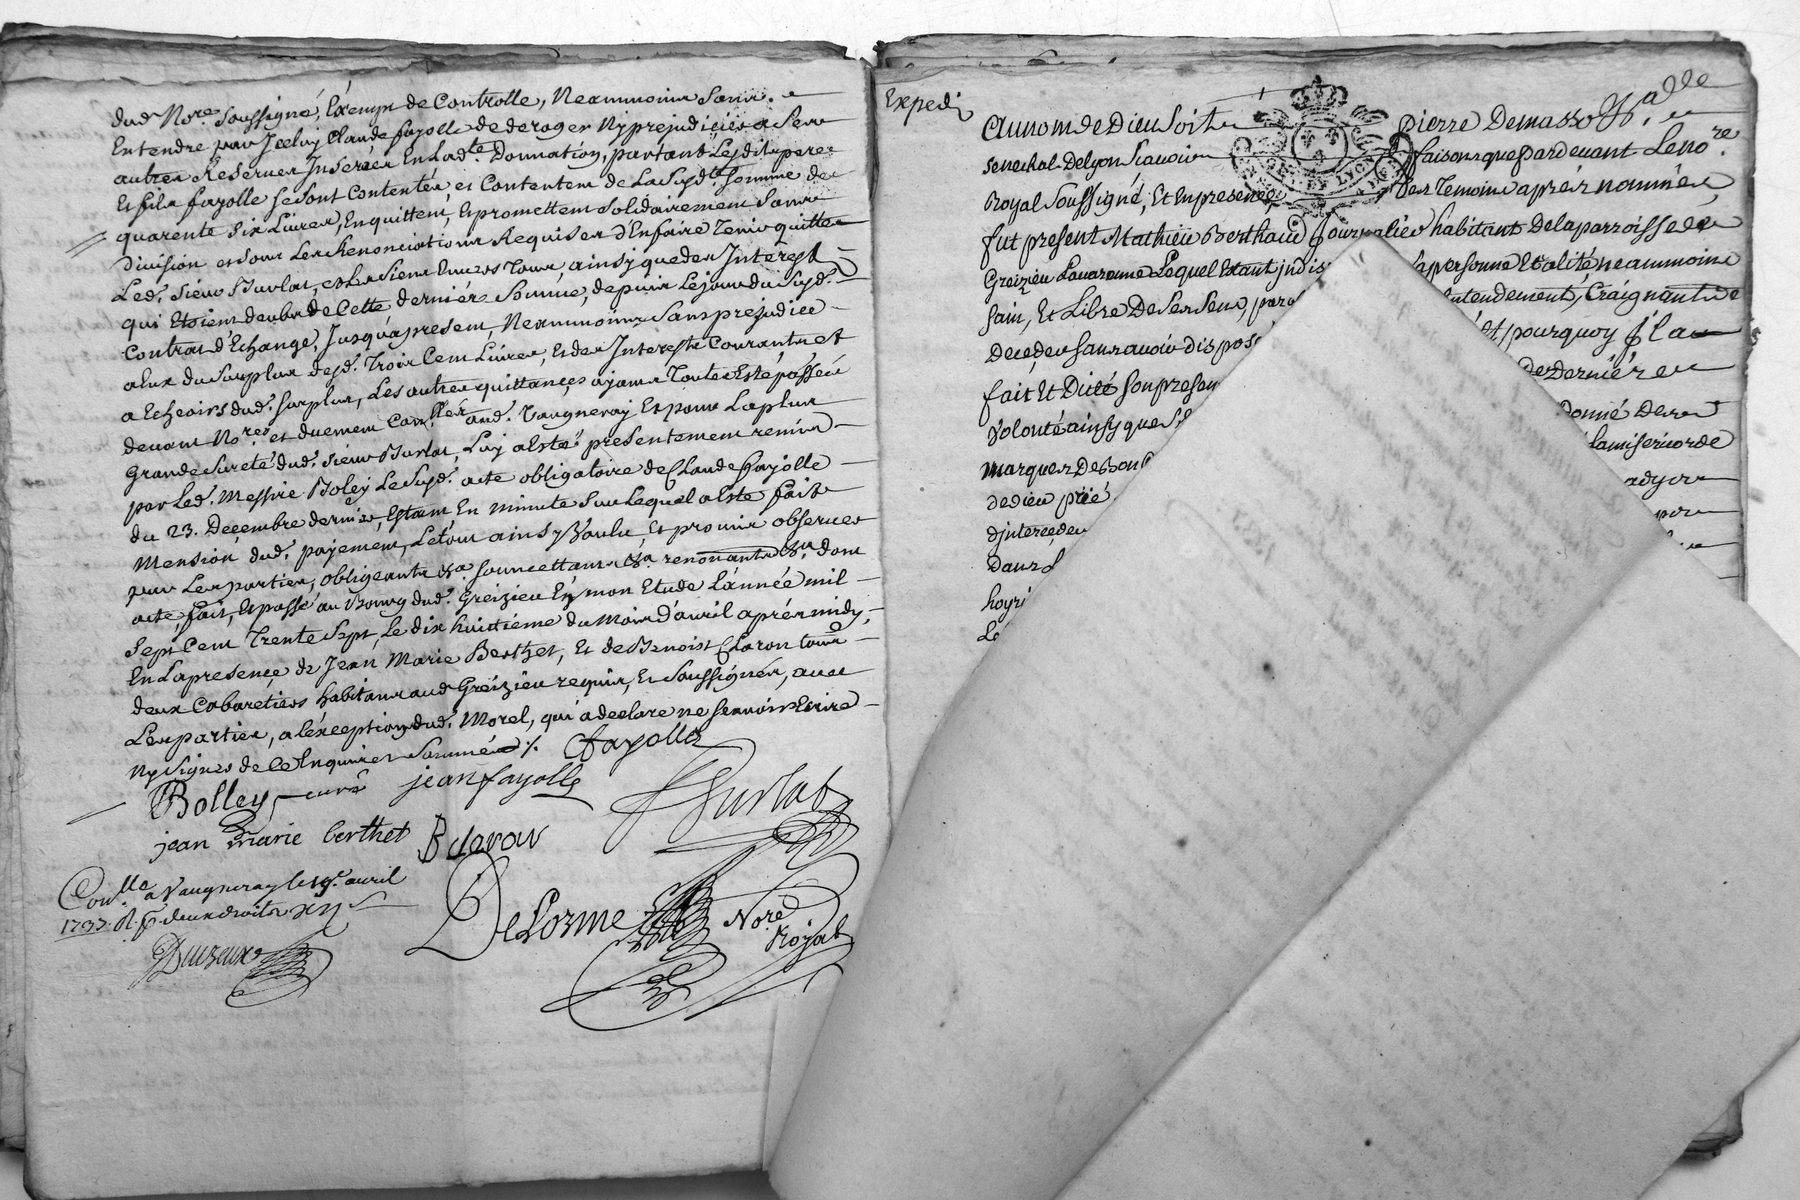 dud. No.re Soussigné, Exempt de Controlle, Neammoins Sans
Entendre par Iceluy Claude fayolle de deroger Ny prejudicier a Ses
autres Reserves Inserées En Lad.te Donnation, partant Lesdits pere
Et fils fayolle se sont Contentés et Contentent de La Susd.te Somme de
quarente Six Livres, En quittent, Et promettent Solidairement Sans
Division et sous Les Renonciations Requises d'En faire Tenir quitte
Led. Sieur Burlat, et Les Siens Envers Tous, ainsy que des Interest
qui Etoient deubs de Cette derniére Somme, depuis Le jour du Susd.
Contrat d'Echange, Jusqu'a present, Neammoins Sans prejudice
a Eux du Surplus desd. Trois Cent Livres, Et des Interests Courants et
a Echeoirs dud. Surplus, Les autres quittances ayants Toutes Esté passées
devant No.res et duement Con.llées aud. Vaugneray Et pour La plus
Grande Sureté dud. Sieur Burlat, Luy a Esté presentement remis
par Led. Messire Boley Le Susd. acte obligatoire de Claude fayolle
du 23. Decembre dernier, Estant En minute Sur Lequel a Esté fait
Mension dud. payement, Le tout ainsy Voulu, Et promis observer
par Les parties, obligeants &a soumettants &a renonçants &a dont
acte, fait, Et passé au Bourg dud. Greizieu En mon Etude L'année mil
Sept Cent Trente Sept, Le dix huitiéme du Mois d'avril aprés midy,
En La presence de Jean Marie Berthet, Et de Benoist Claron tous
deux Cabaretiers habitans aud. Greizieu requis, Et Soussignés, avec
Les parties, a l'exception dud. Morel, qui a declaré ne Sçavoir Ecrire
Ny Signer de Ce Enquis et Sommé ./.
Cfayolle
Bolley curé jean fayolle Burlat
jean marie berthet B claron
Con.lle a Vaugneray le 19.e avril
1737. R. deux droits
DeLorme No.re
Royal
Duzeux
Expedié
Au nom de Dieu Soit pierre De masso
Senechal De Lyon Scavoir faisons que pardevant Le No.re
Royal Soussigné, Et En presence des Temoins aprés nommés,
fut present Mathieu Berthaud Journalier habitant De la parroisse de
Greizieu Lavarenne Lequel Estant indis sa personne Et alité neammoins
Sain, Et Libre De Ses Sens, par Entendement, Craignant de
Deceder sans avoir dispos Et pourquoy Il a
fait Et Dicté Son presen de Derniére
Volonté ainsy que S donné De
Marquer De bon la misericorde
de dieu prié
d'interceder
dans